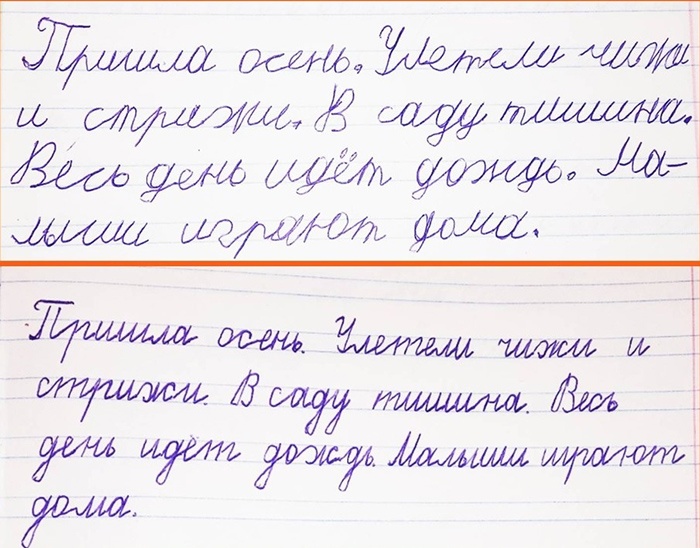 Пришла осень. Улетели чижи
и стрижи. В саду тишина.
Весь день идёт дождь. Ма-
лыши играют дома.
Пришла осень. Улетели чижи и
стрижи. В саду тишина. Весь
день идёт дождь. Малыши играют
дома.